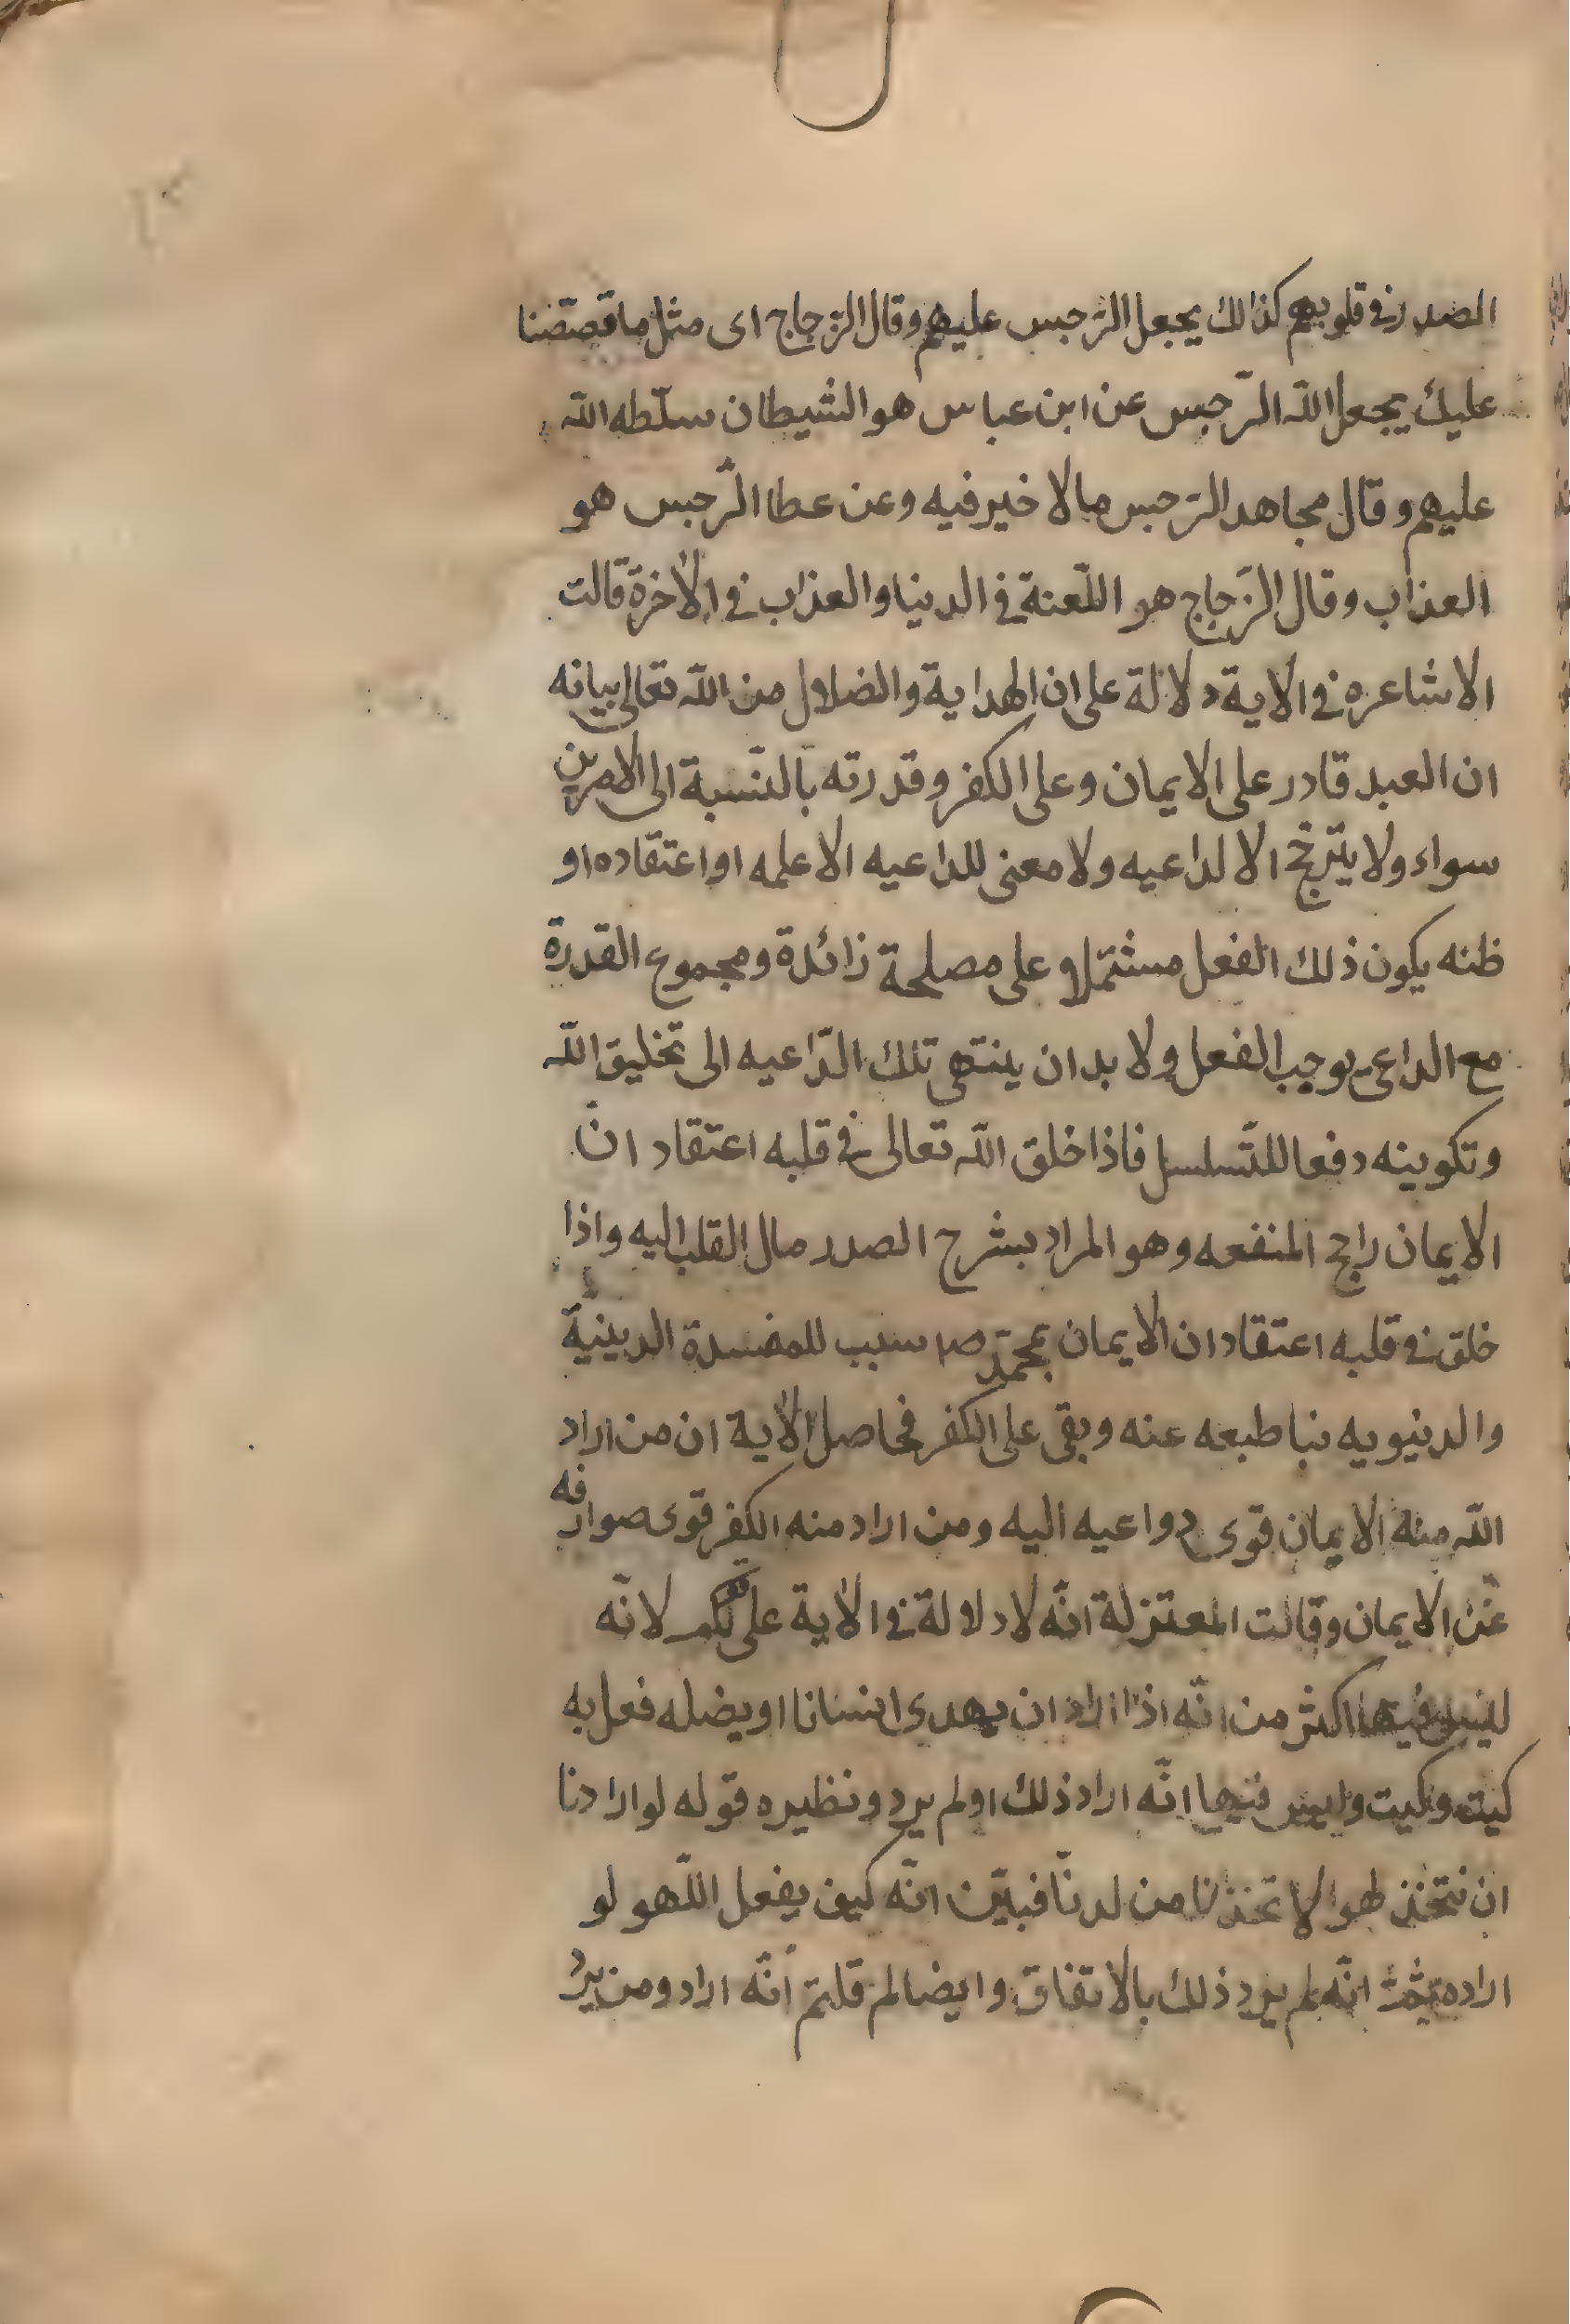 الصدر في قلوبهم كذالك يجعل الرّجس عليهم وقال الزّجاج اى مثل ما قصصنا
عليك يجعل الله الرّجس عن ابن عباس هو الشيطان سلّطه الله
عليهم وقال مجاهد الرّجس ما لا خير فيه وعن عطا الرّجس هو
العذاب وقال الزّجاج هو اللّعنة في الدنيا والعذاب في الآخرة قالت
الاشاعره في الآية دلالة على ان الهداية والضلال من الله تعالى بيانه
ان العبد قادر على الايمان وعلى الكفر وقدرته بالنّسبة الى الامرين
سواء ولا يترجّح الا لداعيه ولا معنى للداعيه الا علمه او اعتقاده او
ظنه يكون ذلك الفعل مشتملا على مصلحة زائدة ومجموع القدرة
مع الداعى يوجب الفعل ولا بد ان ينتهى تلك الدّاعيه الى تخليق الله
وتكوينه دفعا للتّسلسل فاذا خلق الله تعالى في قلبه اعتقاد انّ
الايمان راجح المنفعه وهو المراد بشرح الصدر مال القلب اليه واذا
خلق في قلبه اعتقاد ان الايمان بمحمّد صم سبب للمفسدة الدينيّة
والدنيويه نبا طبعه عنه وبقى على الكفر فحاصل الآية ان من اراد
الله منه الايمان قوى دواعيه اليه ومن اراد منه الكفر قوى صوارفه
عن الايمان وقالت المعتزلة انّه لا دلالة في الآية على لانّه
ليس فيها اكثر من انّه اذا اراد ان يهدى انسانا او يضله فعل به
كيت وكيت وليس فيها انّه اراد ذلك او لم يرد ونظيره قوله لو اردنا
ان نتخذ لهوا لاتخذنا من لدنّا فبيّن انّه كيف يفعل اللّهو لو
اراده انّه لم يرد ذلك بالاتفاق وايضا لم قلتم أنّه اراد ومن يردْ